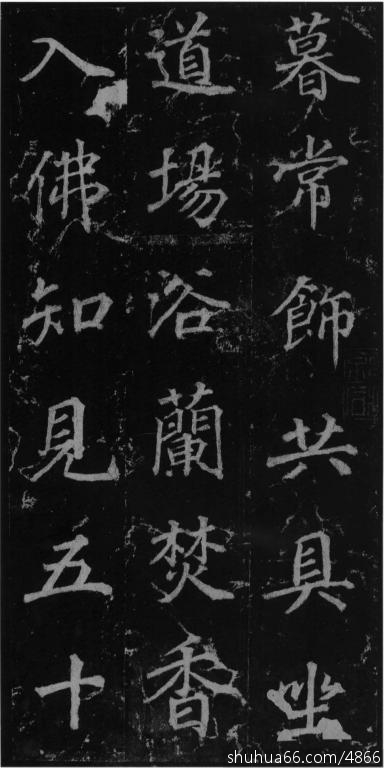 暮常飾共具坐
道場浴蘭焚香
入佛知見五十
shuhua66.com/4866